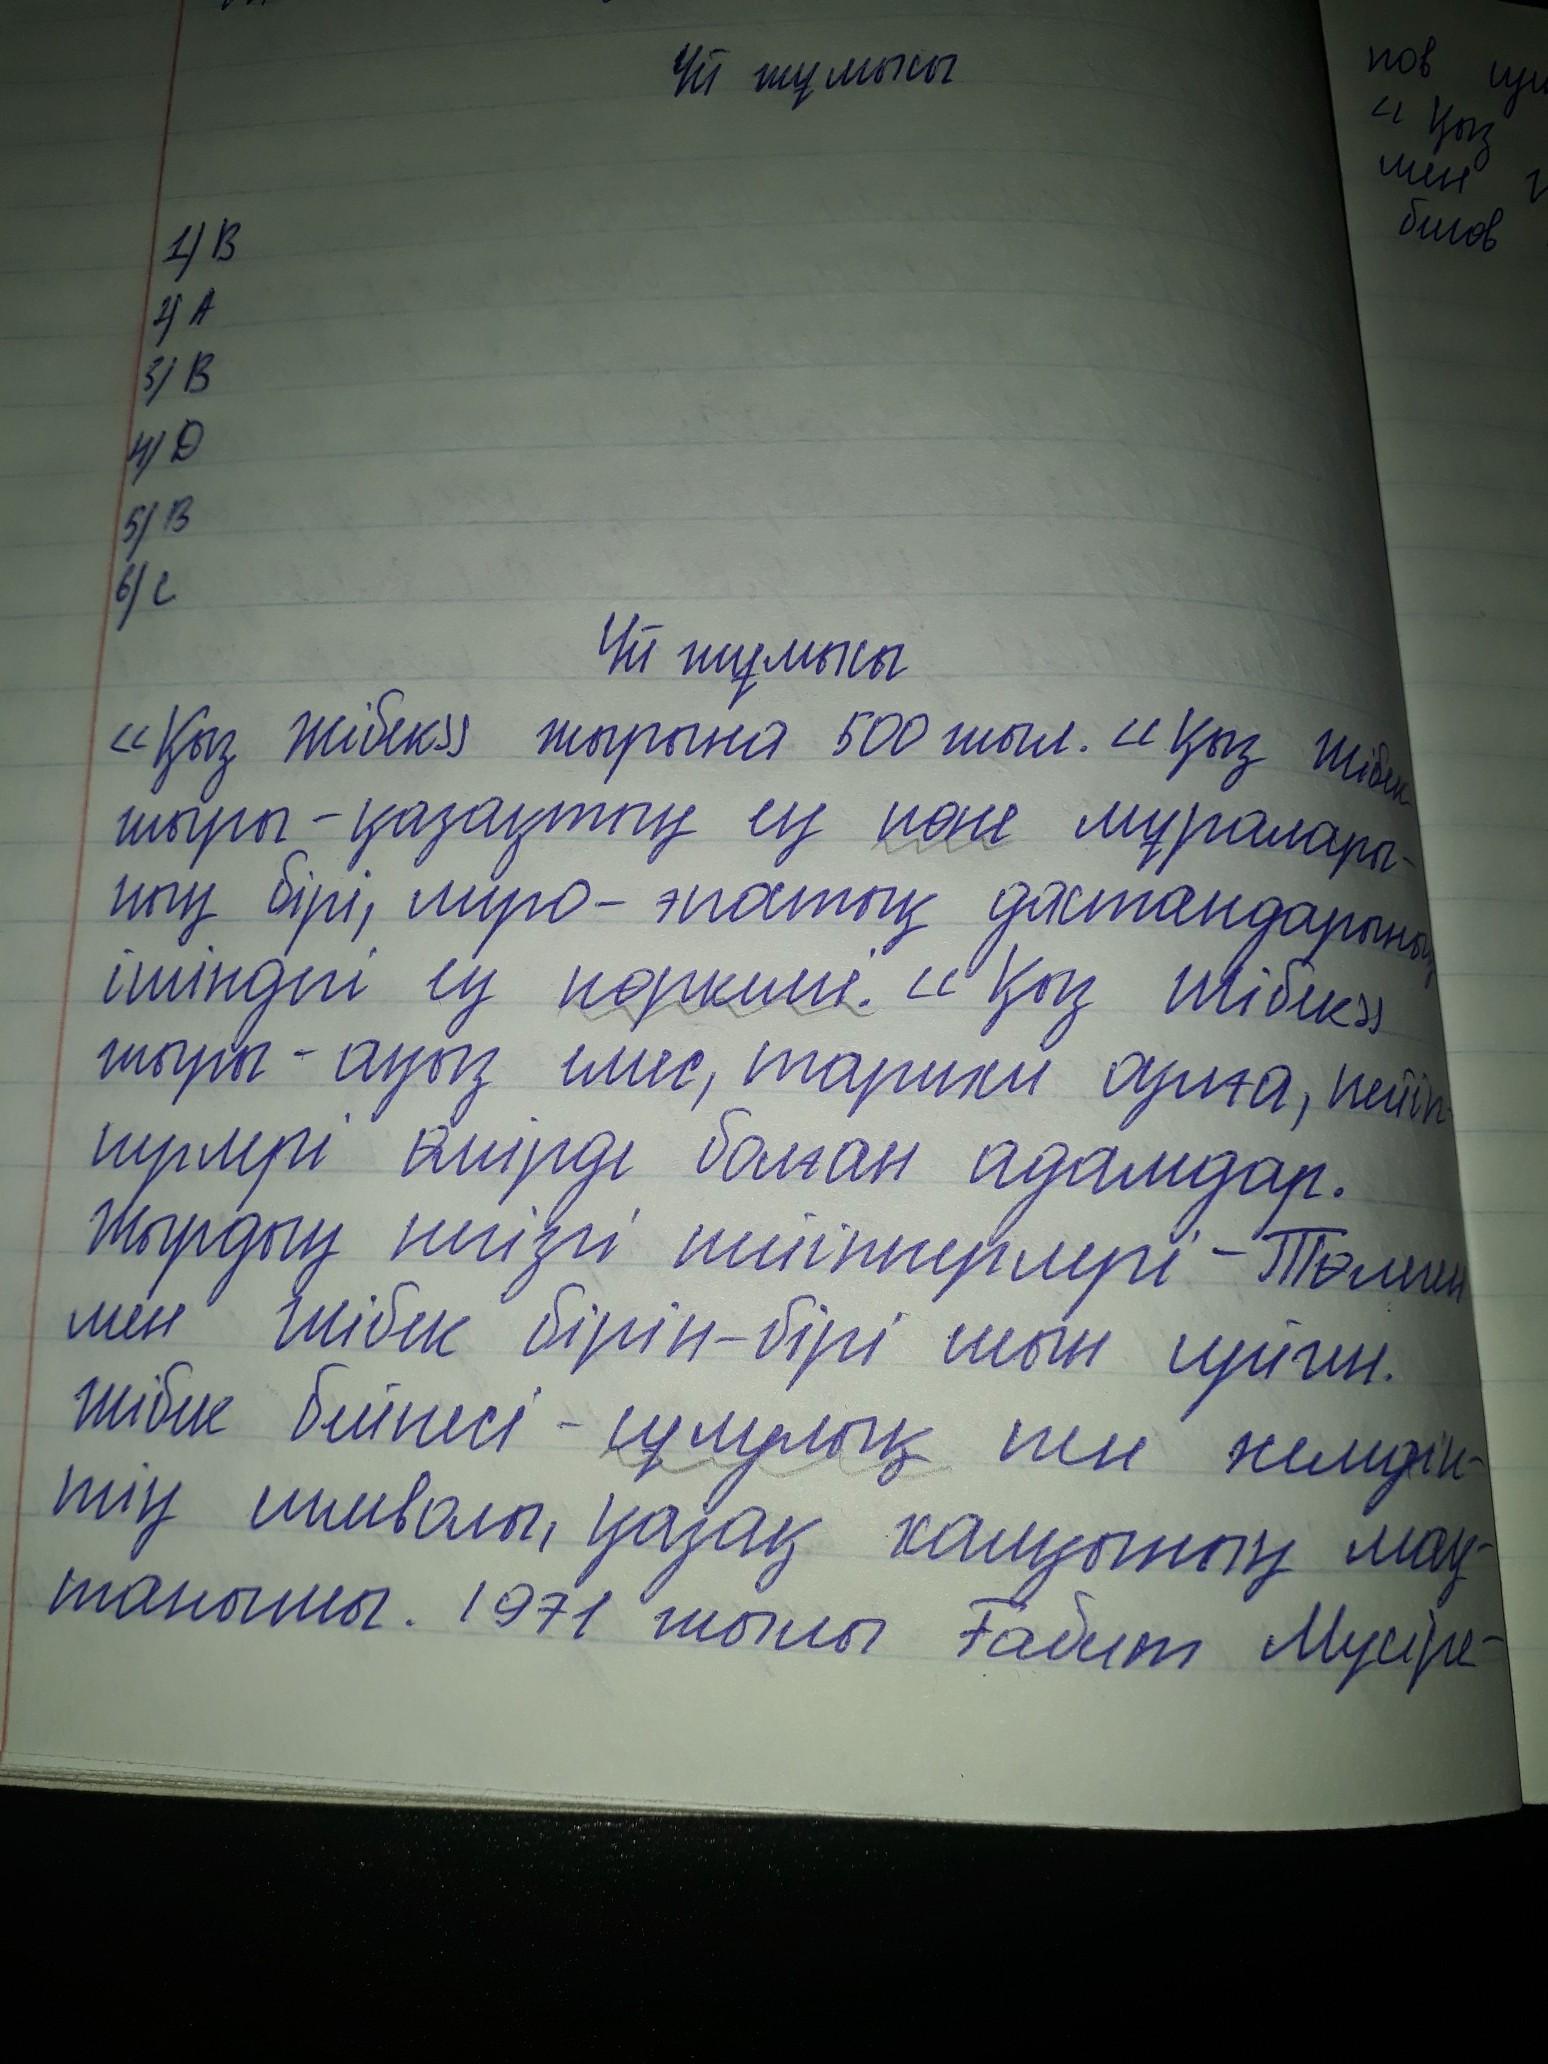 Үй жұмысы
1) В
2) А
3) В
4) D
5) В
6) С
Үй жұмысы
«Қыз Жібек» жырына 500 жыл. «Қыз Жібек
жыры - қазақтың ең көне мұралары-
ның бірі, лиро-эпостық дастандарының
ішіндегі ең көркемі. «Қыз Жібек»
жыры - аңыз емес, тарихи оқиға, кейіп-
керлері өмірде болған адамдар.
Жырдың негізгі кейіпкерлері - Төлеген
мен Жібек бірін-бірі шын сүйген.
Жібек бейнесі - сұлулық пен кемдік-
тің символы, қазақ халқының мақ-
танышы. 1971 жылы Ғабит Мүсіре-
пов
«Қыз
мен
билов